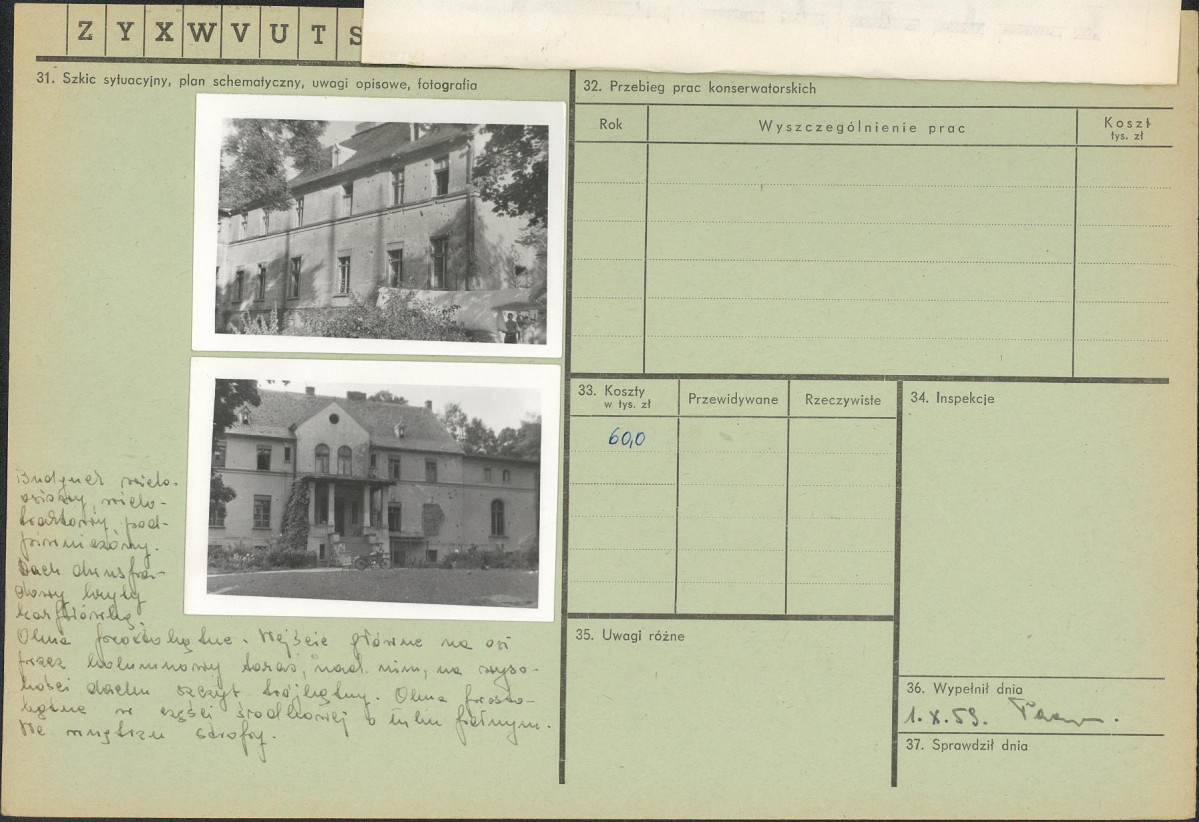 Z Y X W V U T S
31. Szkic sytuacyjny, plan schematyczny, uwagi opisowe, fotografia
Budynek wielo-
osiowy, wielo-
traktowy, pod-
piwniczony.
Dach
kryty
karpiówką.
Okna prostokątne. Wejście główne na osi
przez kolumnowy taras, nad nim, na wyso-
kości dachu szczyt trójkątny. Okna prosto-
kątne w części środkowej o łuku pełnym.
We wnętrzu stropy.
32. Przebieg prac konserwatorskich
Rok Wyszczególnienie prac Koszt
tys. zł
33. Koszty
w tys. zł
Przewidywane Rzeczywiste
60,0
34. Inspekcje
35. Uwagi różne
36. Wypełnił dnia
1.X.59.
37. Sprawdził dnia